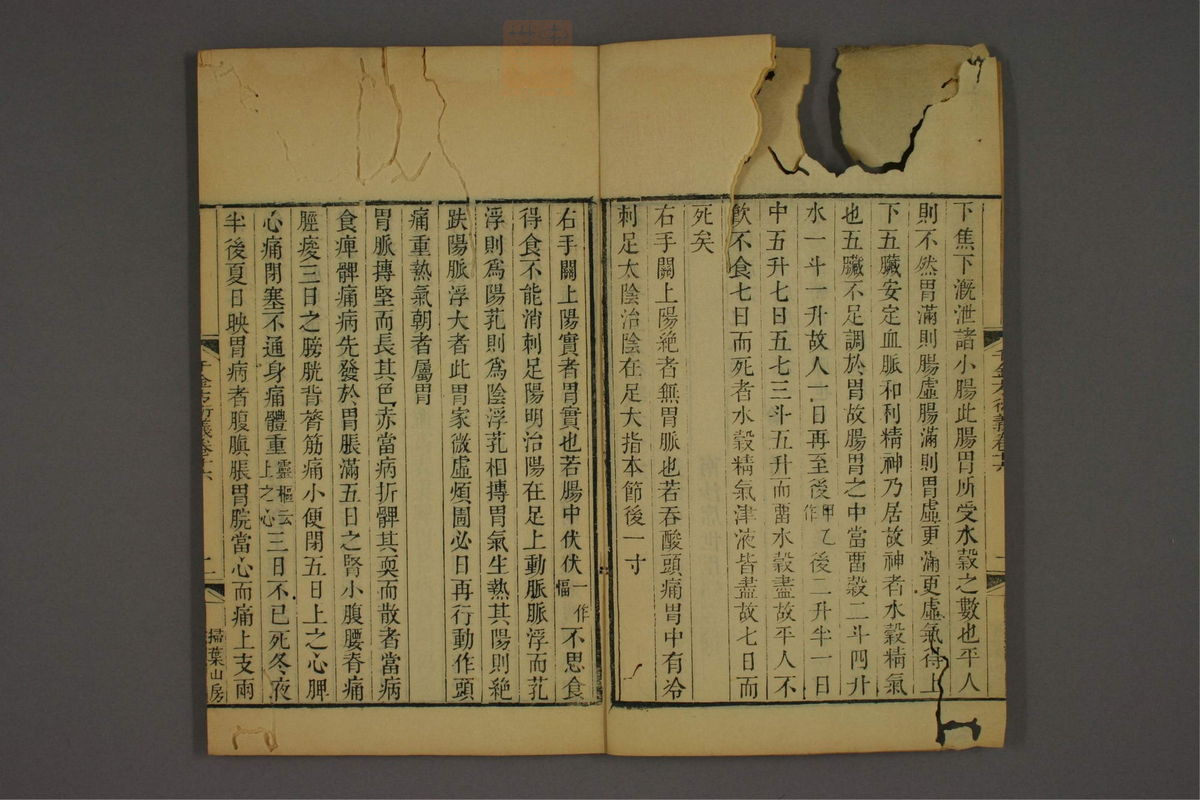 下焦下溉泄諸小腸此腸胃所受水穀之數也平人
則不然胃滿則腸虛腸滿則胃虛更滿更虛氣得上
下五臟安定血脈和利精神乃居故神者水穀精氣
也五臟不足調於胃故腸胃之中當畱穀二斗四升
水一斗一升故人一日再至後甲乙作後二升半一日
中五升七日五七三斗五升而畱水穀盡故平人不
飲不食七日而死者水穀精氣津液皆盡故七日而
死矣
右手關上陽絕者無胃脈也若吞酸頭痛胃中有冷
刺足太陰治陰在足大指本節後一寸
右手關上陽實者胃實也若腸中伏伏一作愊不思食
得食不能消刺足陽明治陽在足上動脈脈浮而芤
浮則爲陽芤則爲陰浮芤相摶胃氣生熱其陽則絕
趺陽脈浮大者此胃家微虛煩圊必日再行動作頭
痛重熱氣朝者屬胃
胃脈摶堅而長其色赤當病折髀其耎而散者當病
食痺髀痛病先發於胃脹滿五日之腎小腹腰脊痛
脛痠三日之膀胱背膂筋痛小便閉五日上之心脾
心痛閉塞不通身痛體重靈樞云上之心三日不已死冬夜
半後夏日昳胃病者腹䐜脹胃脘當心而痛上支兩
千金方衍義卷十六
二
掃葉山房